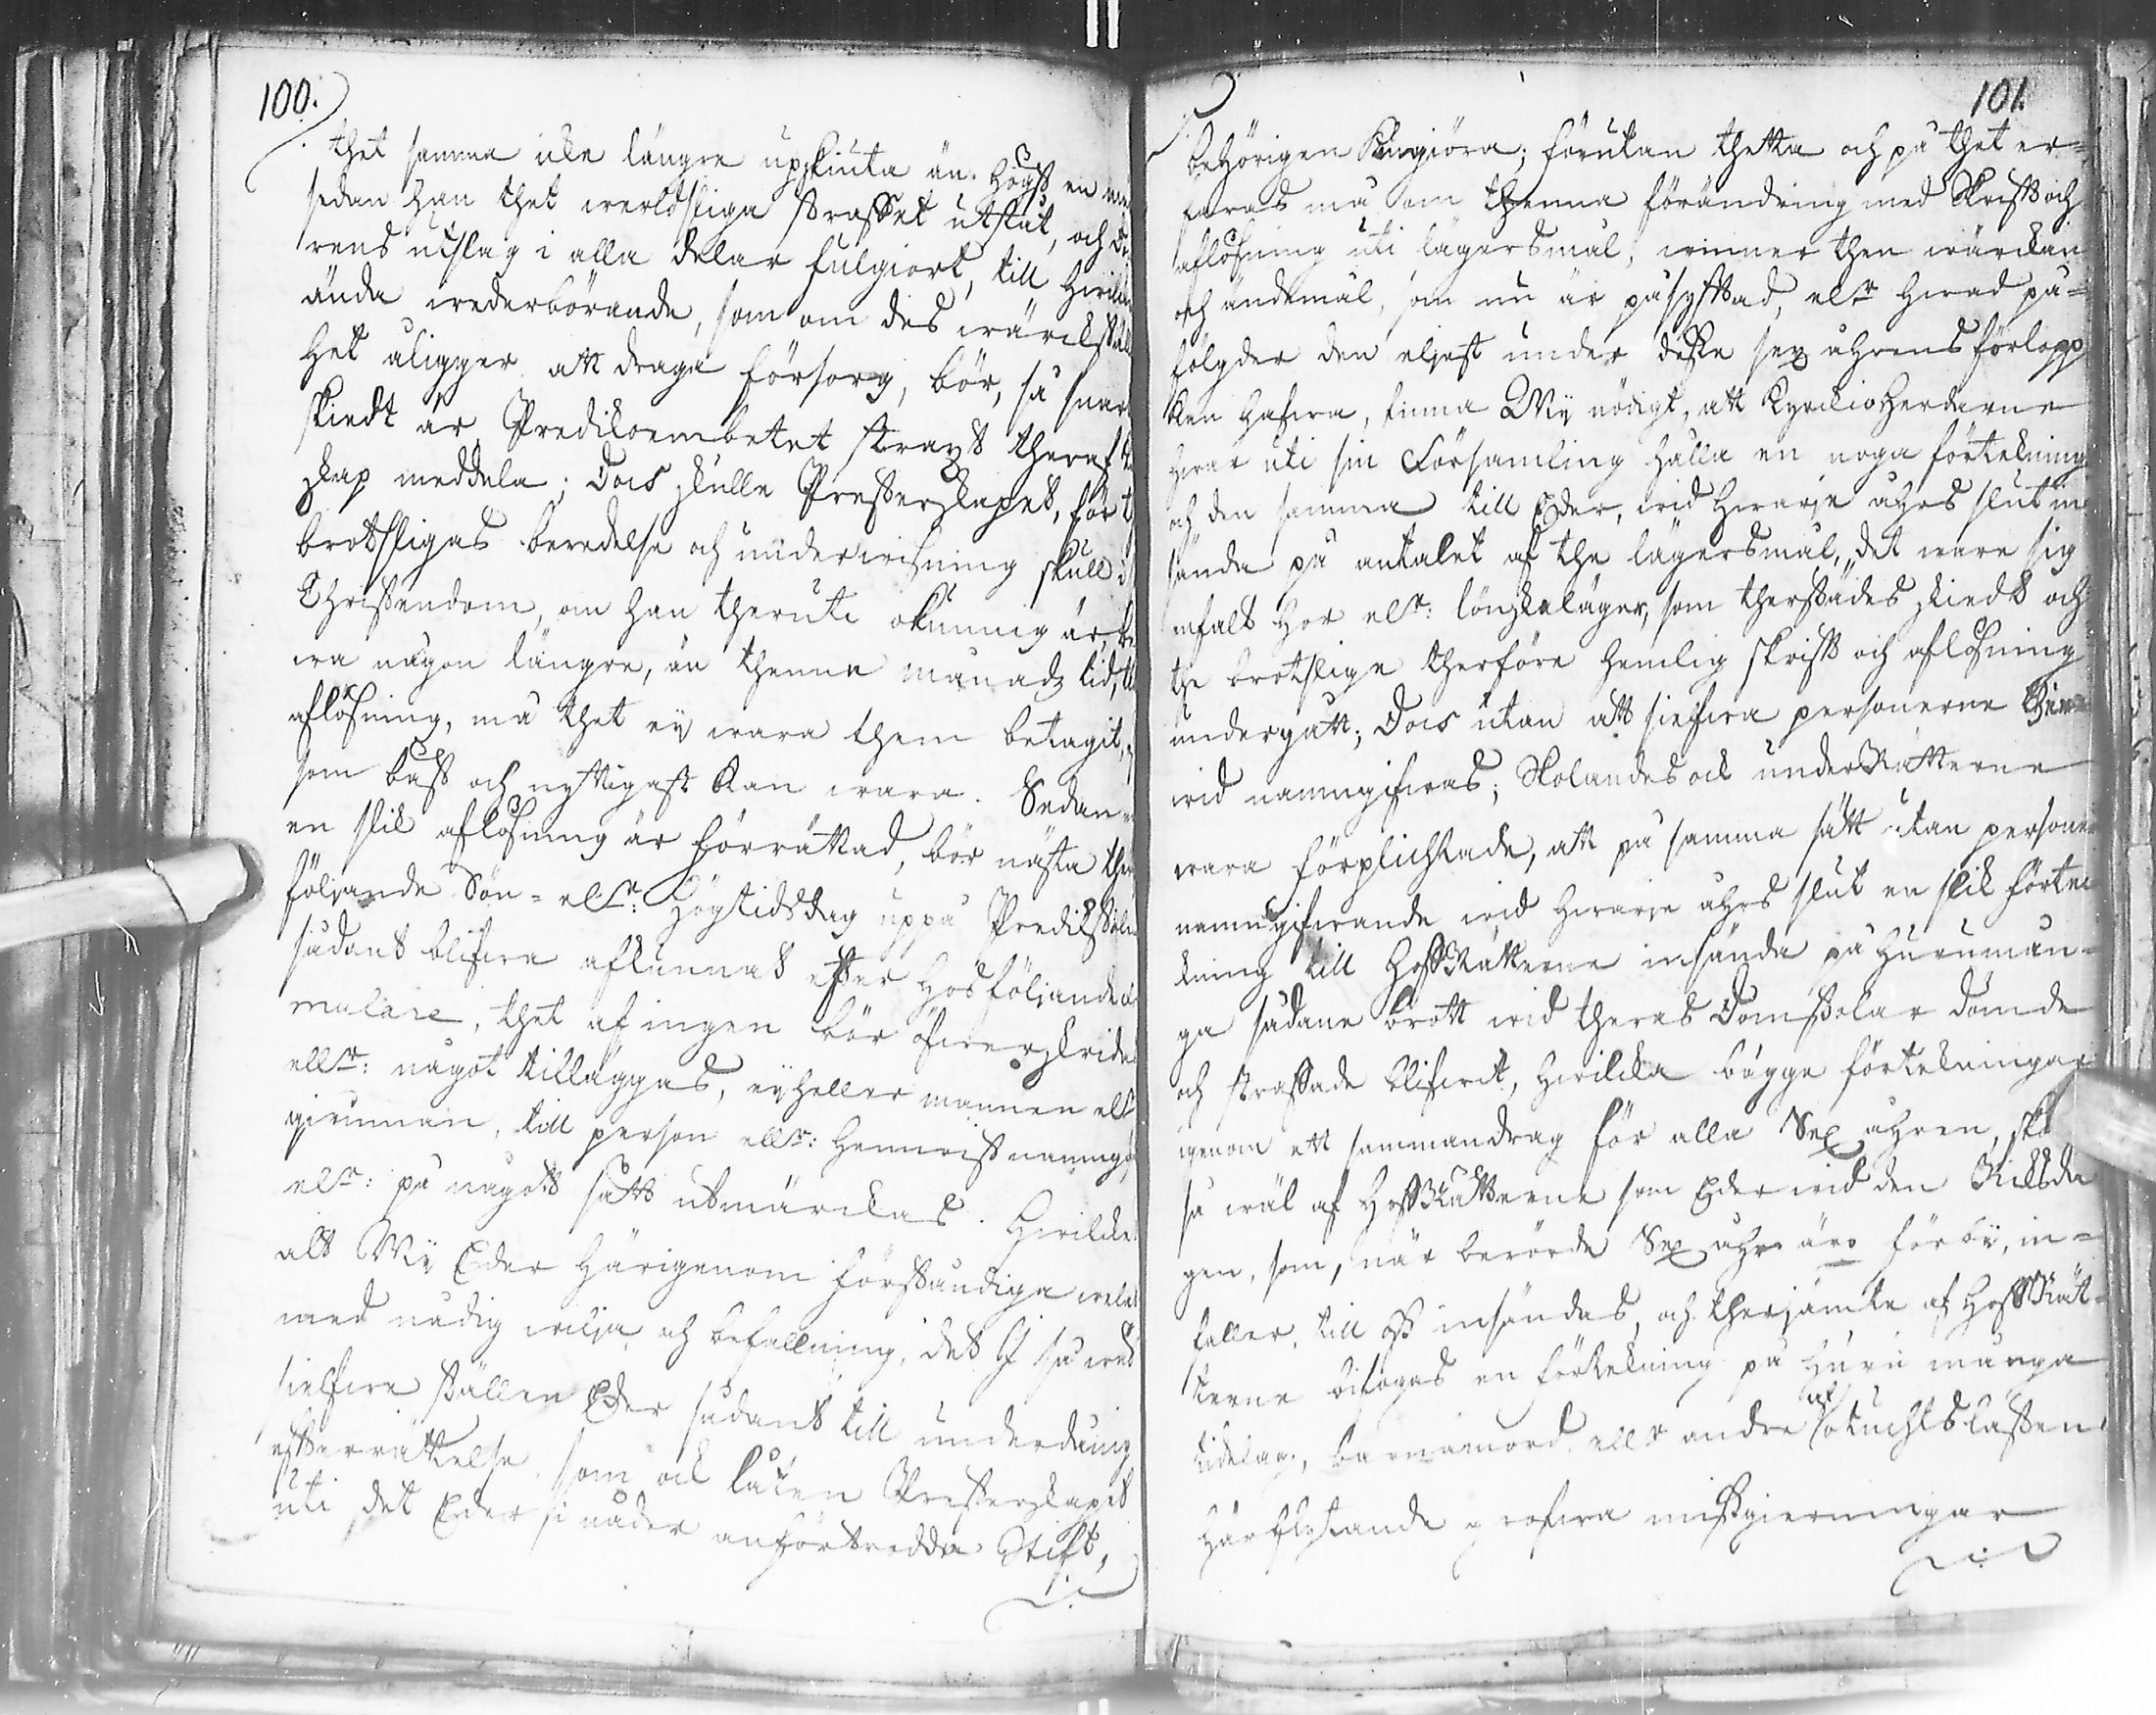 100.
thet samma icke längre upskiuta än högst en
sedan han thet werldsliga straffet utståt, och
rens utslag i alla delar fulgiort, till
ända wederbörande, som om des wärckstäl
het åligger att draga försorg, bör, så snar
skiedt är Predikoembetet straxt theraf
skap meddela; Dock skulle Presterskapet, för
brotsligas beredelse och underwisning skull i
Christendom, om han theruti okunnig är,
wa någon längre, än thenna månadz tid,
aflösning, må thet ej wara them betagit,
som bäst och nyttigast kan wara. Sedan
en slik aflösning är förrättad, bör nästa ther
följande Sön- ellr: Högtidsdag uppå Predikstolen
sådant blifwa afkunnat efter hosföljande
mulaire, thet af ingen bör öfwerskrida
ellr: något tilläggas, ej heller mannen ellr
qwinnan, till person ellr: hemwist namngif
ellr: på någott sätt utmärckas. Hwilcket
alt Wij Eder härigenom förständiga welat
med nådig wilja och befallning, det I så wäl
sielfwe ställen Eder sådant till underdånig
efterrättelse, som ock låten Presterskapet
uti det Eder i nåder anförtrodda Stift,
101.
behörigen kungiöra; förutan thetta och på thet er-
faras må om thenna förändring med skrift och
aflösning uti lägersmål, winner then wärckan
och ändemål, som nu är påsyftad, ellr hwad på-
fölgder den eljest under desse sex åhrens förlopp
kan hafwa, finna Wij nödigt, att Kyrckioherdarne
hwar uti sin Församling hålla en noga förtekning
och den samma till Eder, wid hwarje åhrs slut in
sända på antalet af the lägersmål, det ware sig
enfalt hor ellr: lönskeläger, som therstädes skiedt och
the brotslige therföre hemlig skrift och aflösning
undergått; Dock utan att sielfwa personerne
wid namngifwas; Skolandes ock underRätterne
wara förplichtade, att på samma sätt utan personers
namngifwande wid hwarje åhrs slut en slik förtec
kning till HofRätterne insända på huruman-
ga sådane brott wid theras Domstolar dömde
och straffade blifwit, hwilcka bägge förtekningar
igenom ett sammandrag för alla Sex åhren,
så wäl af HofRätterne som Eder wid den Riksda
gen, som, när berörde Sex åhr äro förbi, in-
faller, till oss insändas, och therjämte af HofRät-
terne bifogas en förtekning på huru många
tidelag, barnamord, ellr andre af otuchtslasten
härflytande grofwa missgierningar